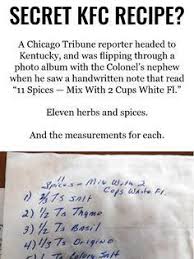 SECRET KFC RECIPE?
A Chicago Tribune reporter headed to
Kentucky, and was flipping through a
photo album with the Colonel's nephew
when he saw a handwritten note that read
"11 Spices — Mix With 2 Cups White Fl."
Eleven herbs and spices.
And the measurements for each.
11
Spices - Mix With 2
Cups White Fl.
1) 2/3 Ts Salt
2) 1/2 Ts Thyme
3) 1/2 Ts Basil
4) 1/3 Ts Origino
Ts Celery Salt